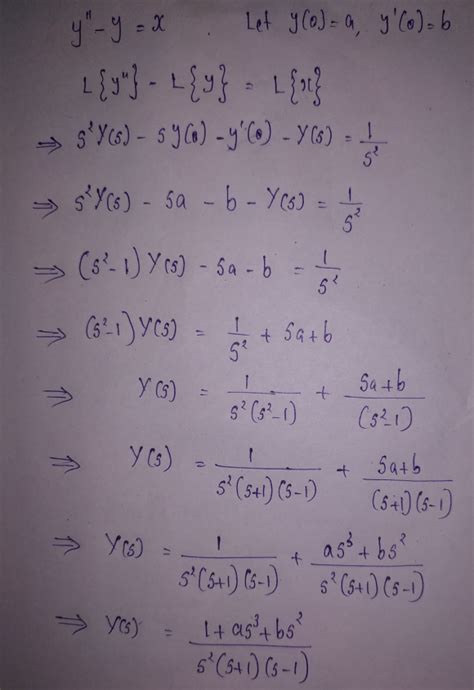 y'' - y = x    Let y(0) = a, y'(0) = b
L{y''} - L{y} = L{x}
⇒ s²Y(s) - sy(0) - y'(0) - Y(s) = 1/s²
⇒ s²Y(s) - sa - b - Y(s) = 1/s²
⇒ (s²-1)Y(s) - sa - b = 1/s²
⇒ (s²-1)Y(s) = 1/s² + sa + b
⇒ Y(s) = 1/(s²(s²-1)) + (sa+b)/(s²-1)
⇒ Y(s) = 1/(s²(s+1)(s-1)) + (sa+b)/((s+1)(s-1))
⇒ Y(s) = 1/(s²(s+1)(s-1)) + (as³+bs²)/(s²(s+1)(s-1))
⇒ Y(s) = (1+as³+bs²)/(s²(s+1)(s-1))